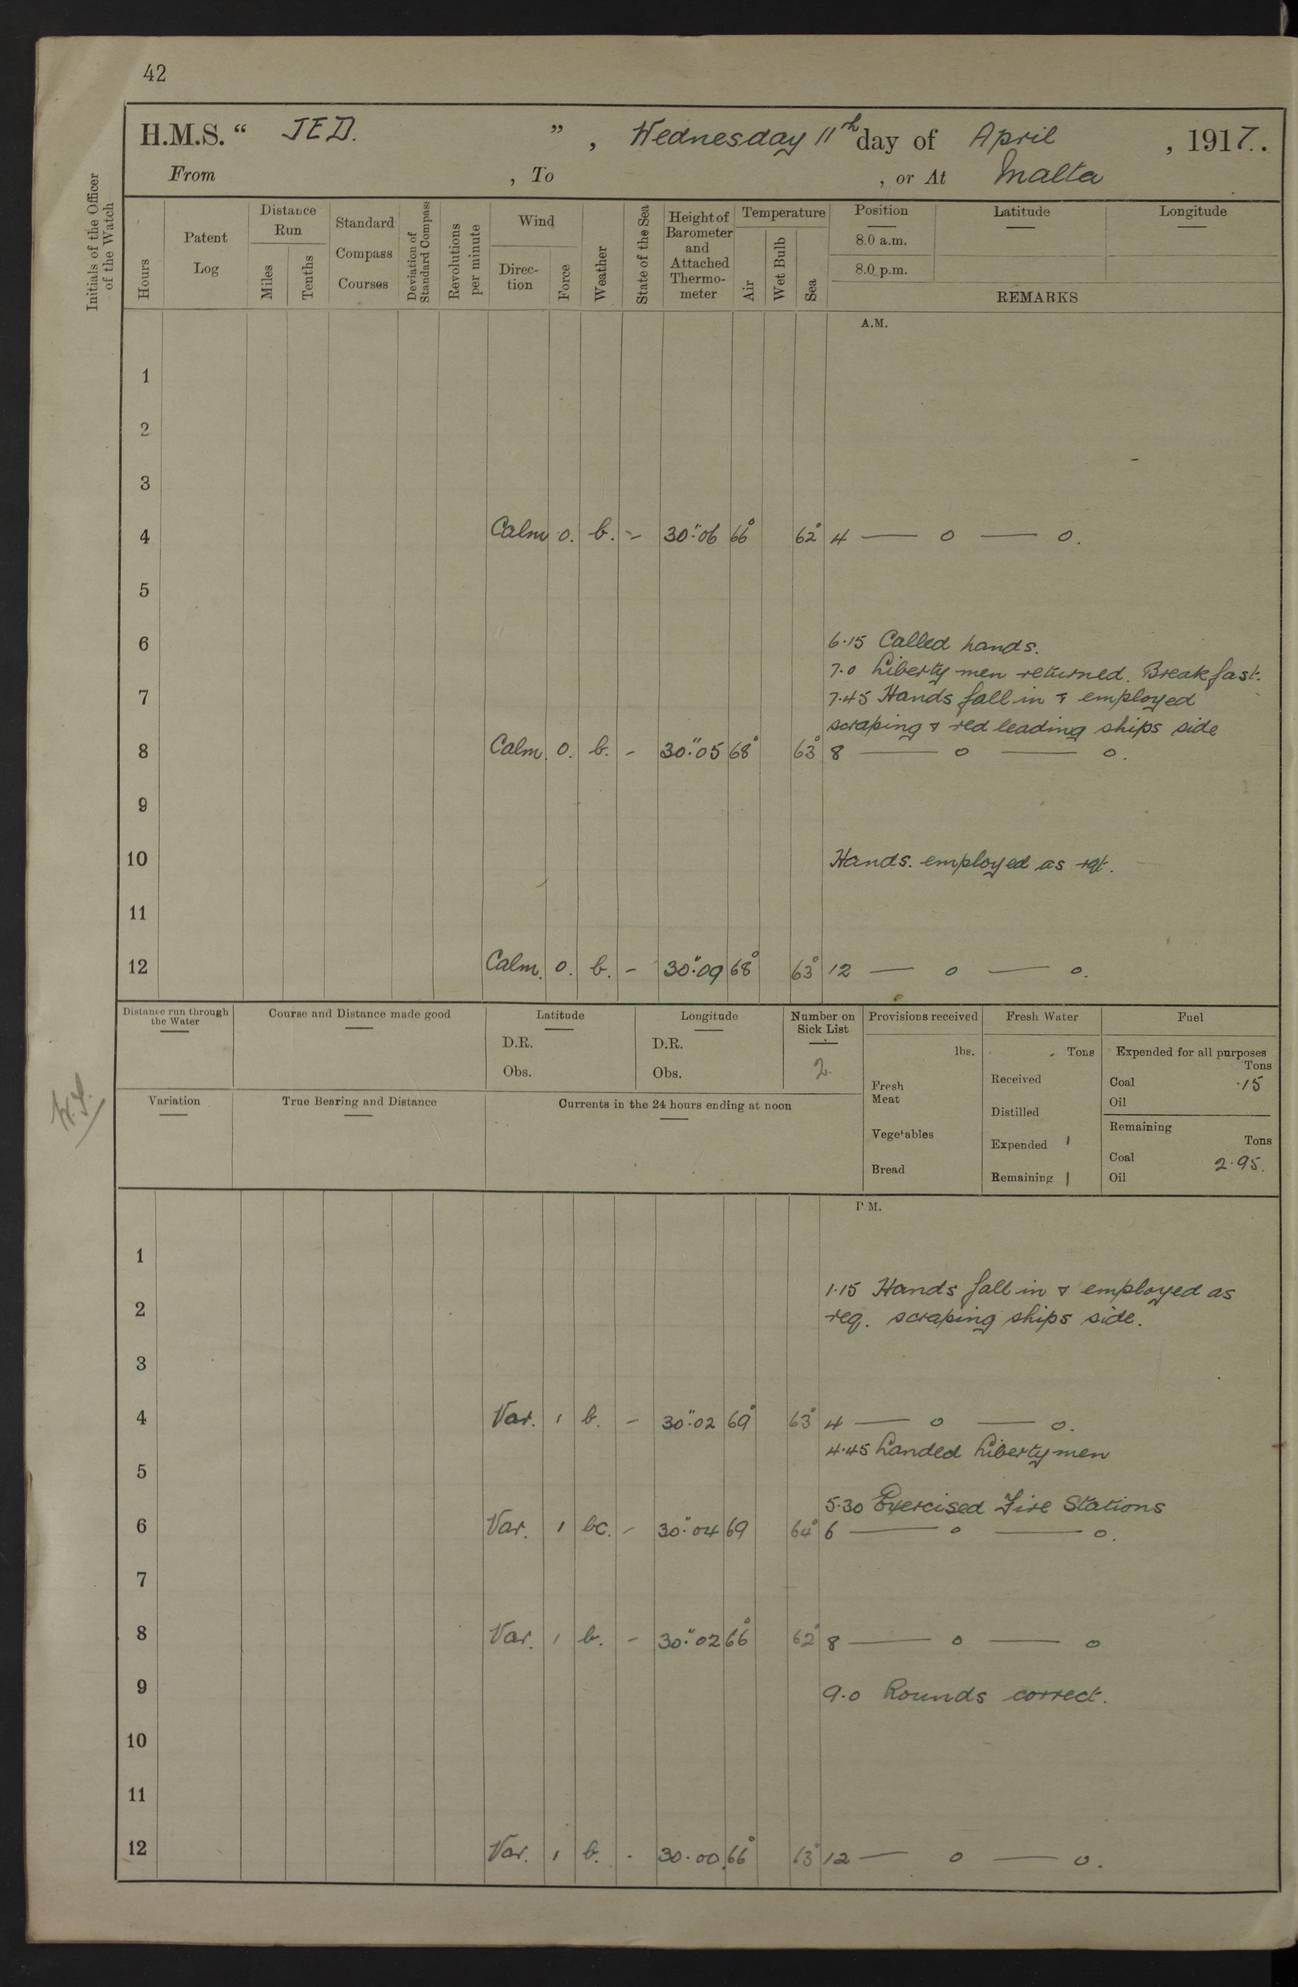 42
H.M.S. " JED. " , Wednesday 11th day of April , 1917.
From , To , or At Malta
Initials of the Officer of the Watch
Hours
Patent Log
Distance Run
Miles
Tenths
Standard Compass Courses
Deviation of Standard Compass
Revolutions per minute
Wind
Direc-tion
Force
Weather
State of the Sea
Height of Barometer and Attached Thermo-meter
Temperature
Air
Wet Bulb
Sea
Position
8.0 a.m.
8.0 p.m.
Latitude
Longitude
REMARKS
A.M.
1
2
3
4 Calm 0. b. - 30".06 66° 62° 4 — o — o.
5
6 6.15 Called hands.
7.0 Liberty men returned. Breakfast.
7 7.45 Hands fall in & employed
scraping & red leading ships side
8 Calm. 0. b. - 30".05 68° 63° 8 — o — o.
9
10 Hands. employed as rqt.
11
12 Calm. 0. b. - 30".09 68° 63° 12 — o — o.
Distance run through the Water
Course and Distance made good
Latitude
D.R.
Obs.
Longitude
D.R.
Obs.
Number on Sick List
2.
Provisions received
lbs.
Fresh Meat
Vegetables
Bread
Fresh Water
Tons
Received
Distilled
Expended 1
Remaining 1
Fuel
Expended for all purposes
Tons
Coal .15
Oil
Remaining
Tons
Coal 2.95.
Oil
Variation
True Bearing and Distance
Currents in the 24 hours ending at noon
P.M.
1
1.15 Hands fall in & employed as
2 req. scraping ships side.
3
4 Var. 1 b. - 30".02 69° 63° 4 — o — o.
4.45 Landed Liberty men
5
5.30 Exercised Fire Stations
6 Var. 1 bc. - 30".04 69 64° 6 — o — o.
7
8 Var. 1 b. - 30".02 66° 62° 8 — o — o
9 9.0 Rounds correct.
10
11
12 Var. 1 b. - 30.00 66° 63° 12 — o — o.